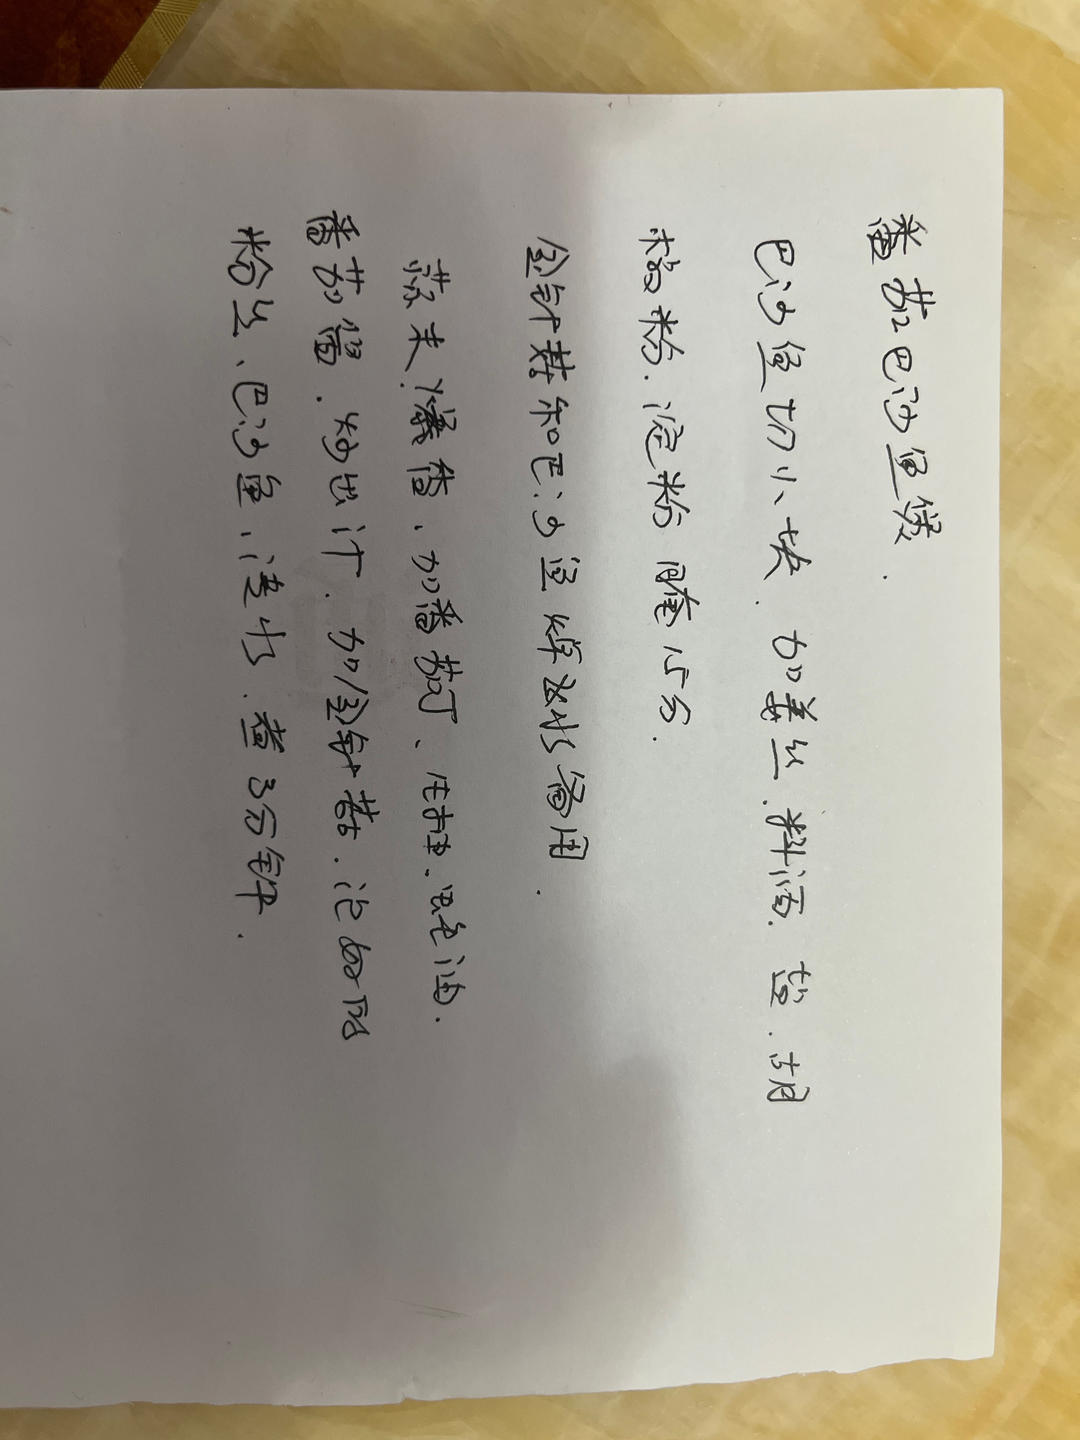 番茄巴沙鱼煲.
巴沙鱼切小块.加姜丝.料酒.盐.胡
椒粉.淀粉腌15分.
金针菇和巴沙鱼焯水备用.
蒜末爆香、加番茄丁、生抽.蚝油.
番茄酱.炒出汁.加金针菇.泡好的
粉丝、巴沙鱼、清水.煮3分钟.